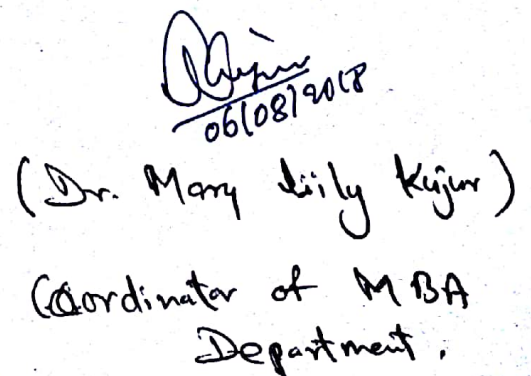 06/08/2018
(Dr. Mary Liily Kujur)
Coordinator of MBA
Department.